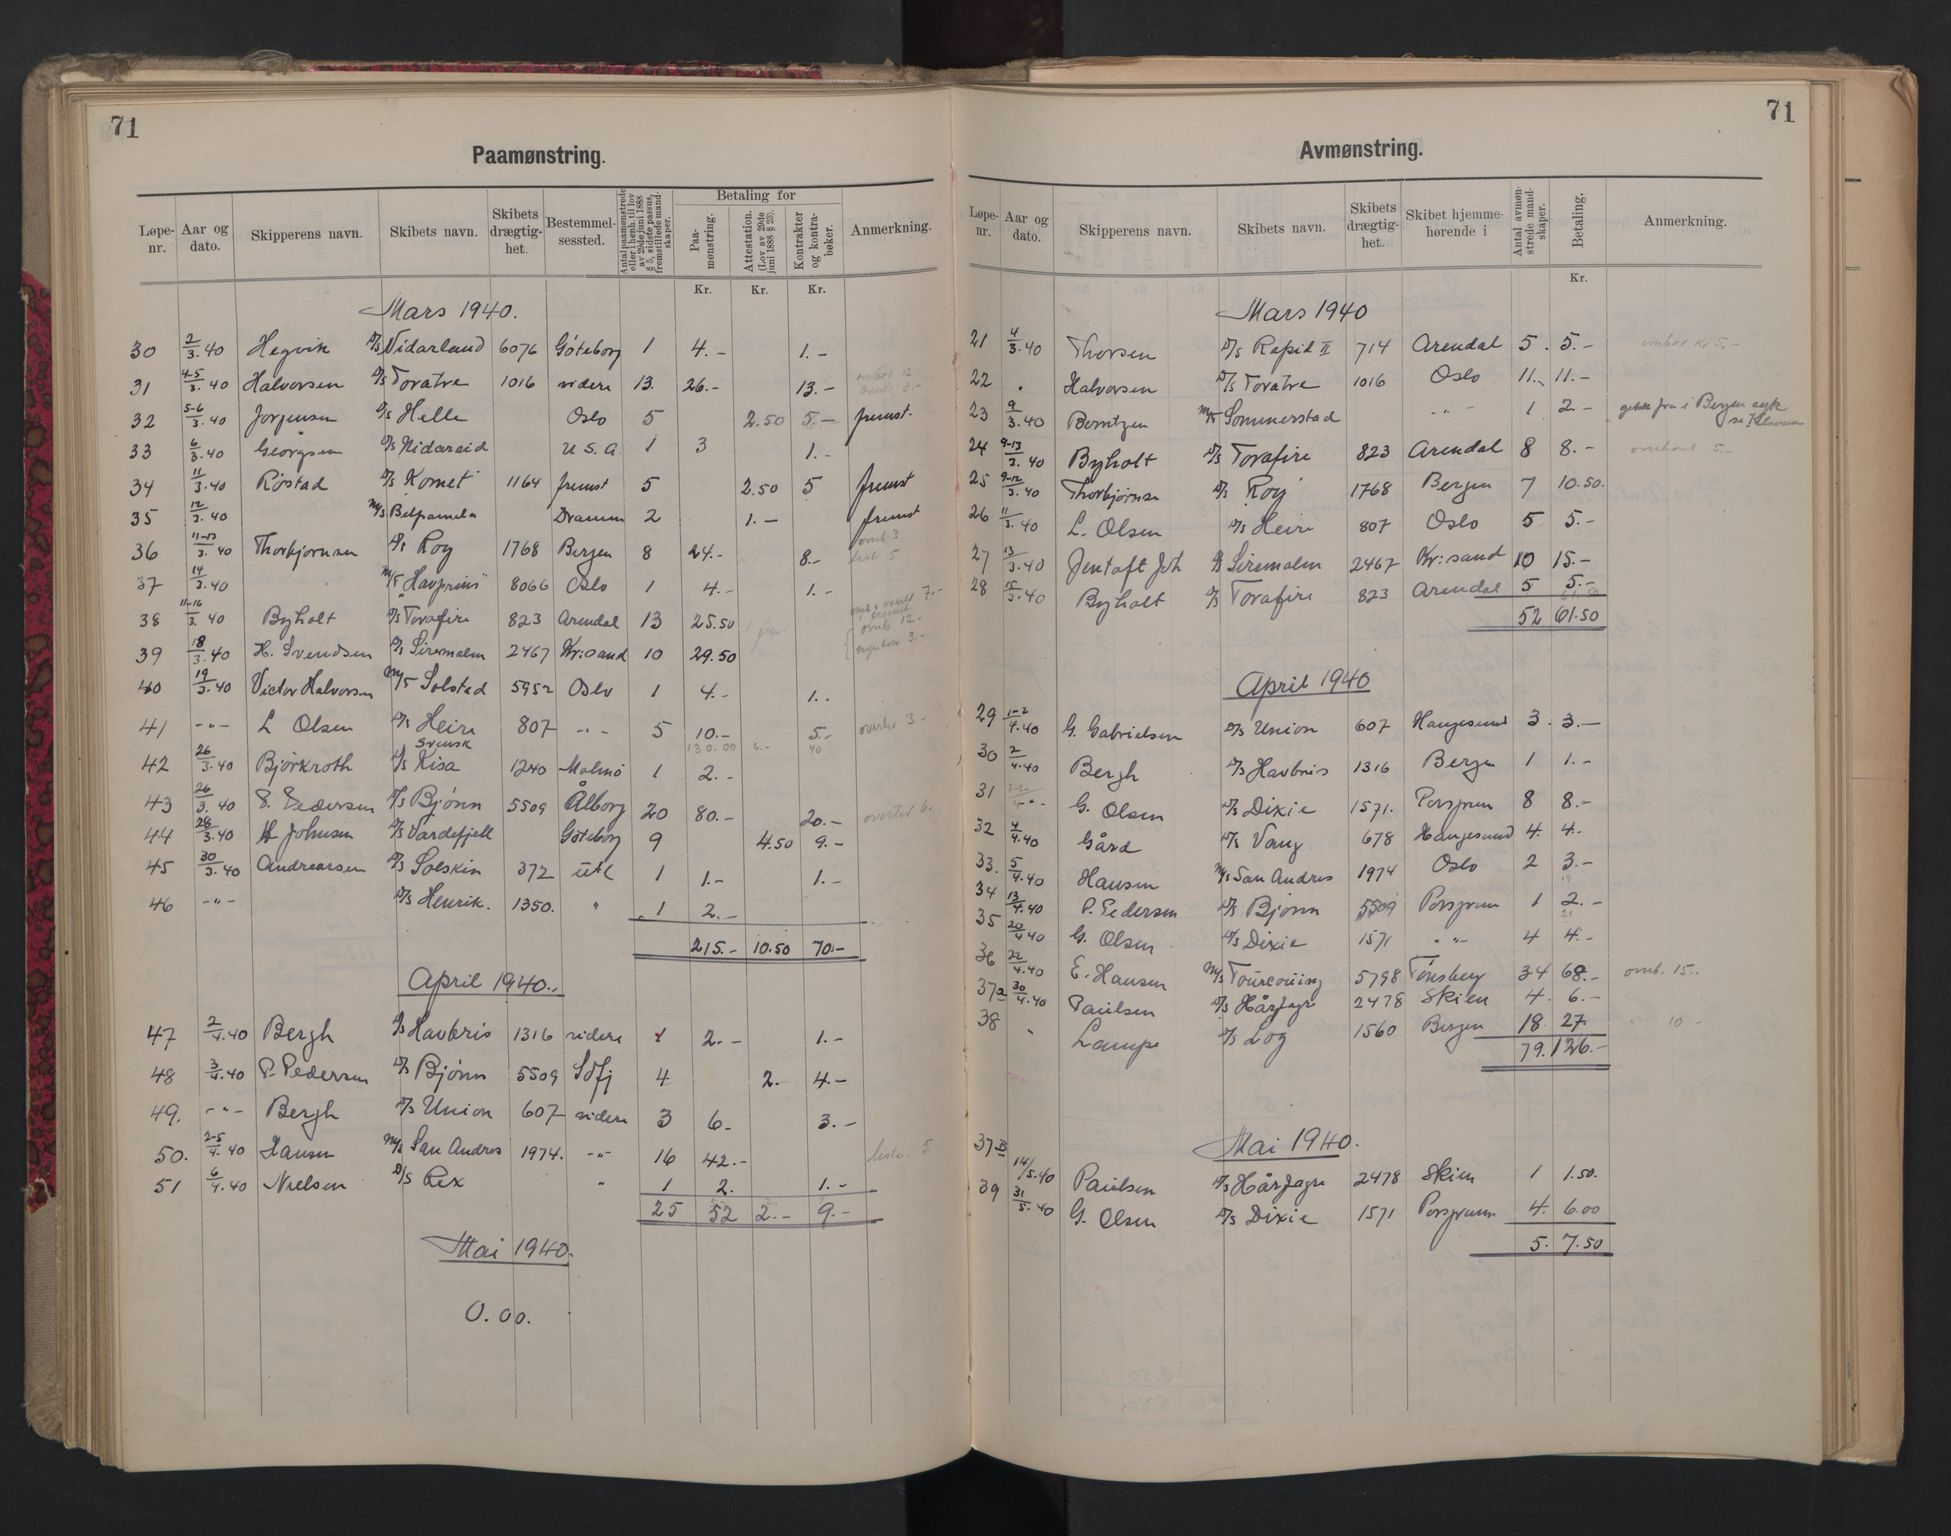 71
Paamønstring.
Løpe-nr. Aar og dato. Skipperens navn. Skibets navn. Skibets drægtig-het. Bestemmel-sessted. Antal paamønstrede eller i henh. til lov av 29de juni 1888 § 5, sidste passus, fremstillede mand-skaper. Betaling for Paa-mønstring. Attestation. (Lov av 29de juni 1888 § 25). Kontrakter og kontra-bøker. Anmerkning.
Kr. Kr. Kr.
Mars 1940.
30 2/3.40 Hegvik D/S Vidarland 6076 Göteborg 1 4.- 1.-
31 4-5/3.40 Halvorsen D/S Toratre 1016 videre 13. 26.- 13.-
32 5-6/3.40 Jørgensen D/S Helle Oslo 5 2.50 5.- fremst.
33 6/3.40 Georgsen D/S Nidareid U.S.A. 1 3 1.-
34 11/3.40 Røstad D/S Komet 1164 fremst 5 2.50 5 fremst
35 12/3.40 M/S Belpamela Drammen 2 1.- fremst
36 11-13/3.40 Thorbjørnsen D/S Roy 1768 Bergen 8 24.- 8.-
37 14/3.40 M/T "Havprins" 8066 Oslo 1 4.- 1.-
38 11-16/3.40 Byholt D/S Torafire 823 Arendal 13 25.50
39 18/3.40 H. Svendsen D/S Siremalm 2467 Kr:sand 10 29.50
40 19/3.40 Victor Halvorsen M/T Solstad 5952 Oslo 1 4.- 1.-
41 -"- L Olsen D/S Heire 807 -"- 5 10.- 5.- overtid 3.-
svensk
42 26/3.40 Bjørkroth D/S Kisa 1240 Malmö 1 2.-
43 26/3.40 P. Pedersen D/S Bjønn 5509 Ålborg 20 80.- 20.- overtid 6.
44 28/3.40 H Johnsen D/S Vardefjell Göteborg 9 4.50 9.-
45 30/3.40 Andreassen D/S Solskin 372 utl 1 1.- 1.-
46 -"- D/S Henrik. 1350. " 1 2.-
215.- 10.50 70.-
April 1940.
47 2/4.40 Bergh D/S Havbris 1316 videre 1 2.- 1.-
48 3/4.40 P. Pedersen D/S Bjønn 5509 Sdfj 4 2. 4.-
49. -"- Bergh D/S Union 607 videre 3 6.- 3.-
50. 2-5/4.40 Hansen M/S San Andres 1974. -"- 16 42.-
51 6/4.40 Nielsen D/S Rex " 1 2. 1.-
25 52 2.- 9.-
Mai 1940.
0.00.
71
Avmønstring.
Løpe-nr. Aar og dato. Skipperens navn. Skibets navn. Skibets drægtig-het. Skibet hjemme-hørende i Antal avmøn-strede mand-skaper. Betaling. Anmerkning.
Kr.
Mars 1940
21 4/3.40 Thorsen D/S Rapid II 714 Arendal 5. 5.- ombor kr 5.-
22 " Halvorsen D/S Toratre 1016 Oslo 11. 11.-
23 9/3.40 Berntzen M/T Sommerstad -"- 1 2.- fra i Bergen syk
24 9-13/3.40 Byholt D/S Torafire 823 Arendal 8 8.- ombord 5.-
25 9-12/3.40 Thorbjørnsen D/S Roy 1768 Bergen 7 10.50.
26 11/3.40 L. Olsen D/S Heire 807 Oslo 5 5.-
27 13/3.40 Jentoft Joh D/S Siremalm 2467 Kr:sand 10 15.-
28 15/3.40 Byholt D/S Torafire 823 Arendal 5 5.-
52 61.50
April 1940
29 1-2/4.40 G. Gabrielsen D/S Union 607 Haugesund 3. 3.-
30 2/4.40 Bergh D/S Havbris 1316 Bergen 1 1.-
31 G. Olsen D/S Dixie 1571. Porsgrunn 8 8.-
32 4/4.40 Gård D/S Vang 678 Haugesund 4. 4.-
33. 5/4.40 Hansen M/S San Andres 1974 Oslo 2 3.-
34 13/4.40 P. Pedersen D/S Bjønn 5509 Porsgrunn 1 2.-
35 20/4.40 G. Olsen D/S Dixie 1571 -"- 4 4.-
36 22/4.40 E. Hansen M/S Touraine 5798 Tønsberg 34 68.- omb. 15.-
37a 30/4.40 Paulsen D/S Hårfagre 2478 Skien 4. 6.-
38 " Lampe D/S Log 1560 Bergen 18 27. " 10 -
79. 126.-
Mai 1940.
37b 14/5.40 Paulsen D/S Hårfagre 2478 Skien 1 1.50.
39 31/5.40 G. Olsen D/S Dixie 1571 Porsgrunn 4. 6.00
5. 7.50